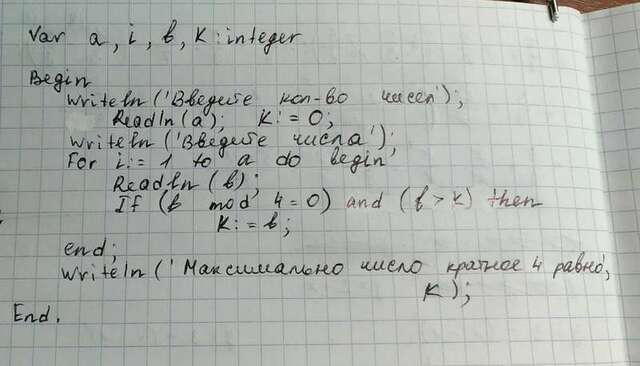 Var a, i, b, K: integer
Begin
Writeln ('Введите кол-во чисел');
Readln (a); K:=0;
Writeln ('Введите числа');
For i:=1 to a do begin
Readln (b);
If (b mod 4=0) and (b>K) then
K:=b;
end;
Writeln ('Максимально число кратное 4 равно',
K);
End.